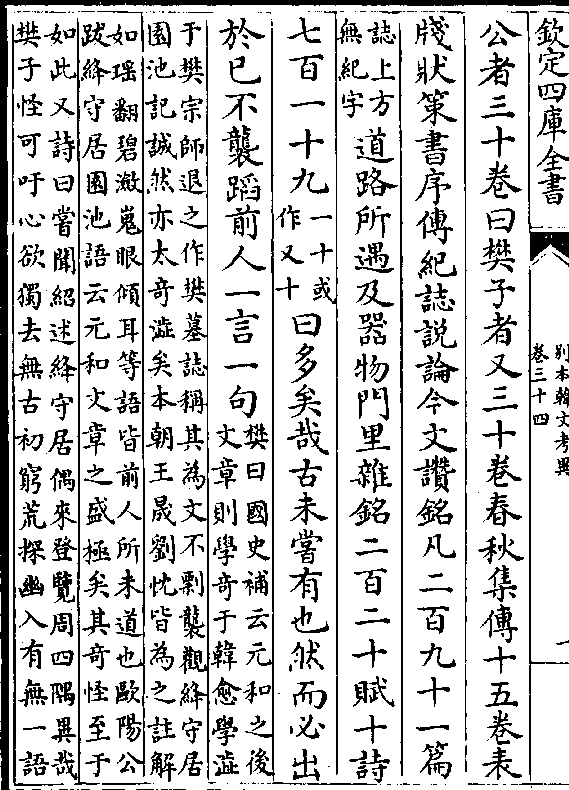 欽定四庫全書
別本韓文考異
卷三十四
一
公者三十卷曰樊子者又三十卷春秋集傳十五卷表
牋狀策書序傳紀誌說論今文讚銘凡二百九十一篇
誌上方
無紀字
道路所遇及器物門里雜銘二百二十賦十詩
七百一十九
一十或
作又十
曰多矣哉古未嘗有也然而必出
於己不襲蹈前人一言一句
樊曰國史補云元和之後
文章則學奇于韓愈學澁
于樊宗師退之作樊墓誌稱其為文不剽襲觀絳守居
園池記誠然亦太奇澁矣本朝王晟劉忱皆為之註解
如瑶翻碧瀲嵬眼傾耳等語皆前人所未道也歐陽公
跋絳守居園池語云元和文章之盛極矣其奇怪至于
如此又詩曰嘗聞紹述絳守居偶來登覽周四隅異哉
樊子怪可吁心欲獨去無古初窮荒探幽入有無一語